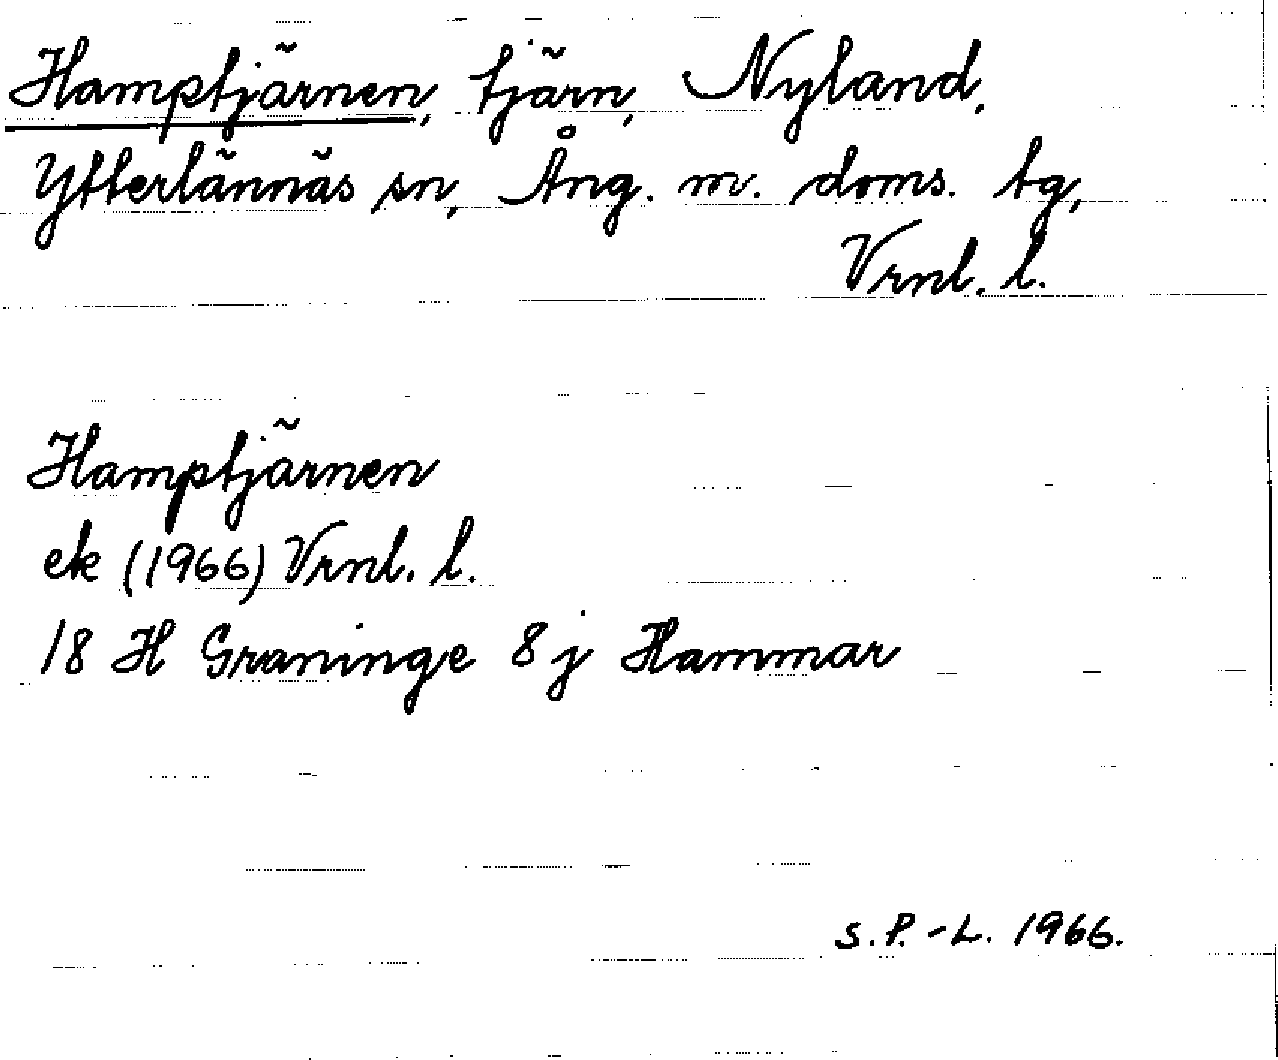 Hamptjärnen, tjärn, Nyland,
Ytterlännäs sn, Ång. m. doms. tg,
Vrnl. l.
Hamptjärnen
ek (1966) Vrnl. l.
18 H Graninge 8 j Hammar
S.P.-L. 1966.